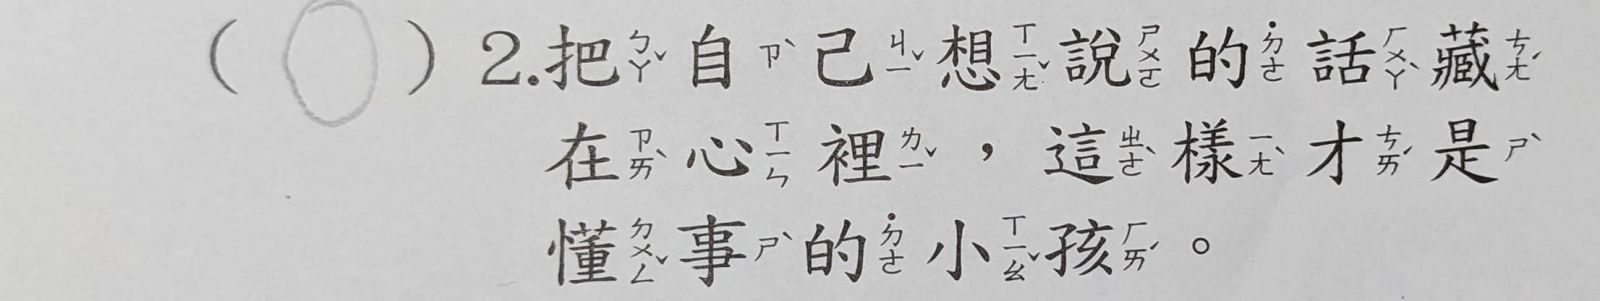 ( ○ ) 2.把ㄅㄚˇ自ㄗˋ己ㄐㄧˇ想ㄒㄧㄤˇ說ㄕㄨㄛ的˙ㄉㄜ話ㄏㄨㄚˋ藏ㄘㄤˊ
在ㄗㄞˋ心ㄒㄧㄣ裡ㄌㄧˇ，這ㄓㄜˋ樣ㄧㄤˋ才ㄘㄞˊ是ㄕˋ
懂ㄉㄨㄥˇ事ㄕˋ的˙ㄉㄜ小ㄒㄧㄠˇ孩ㄏㄞˊ。